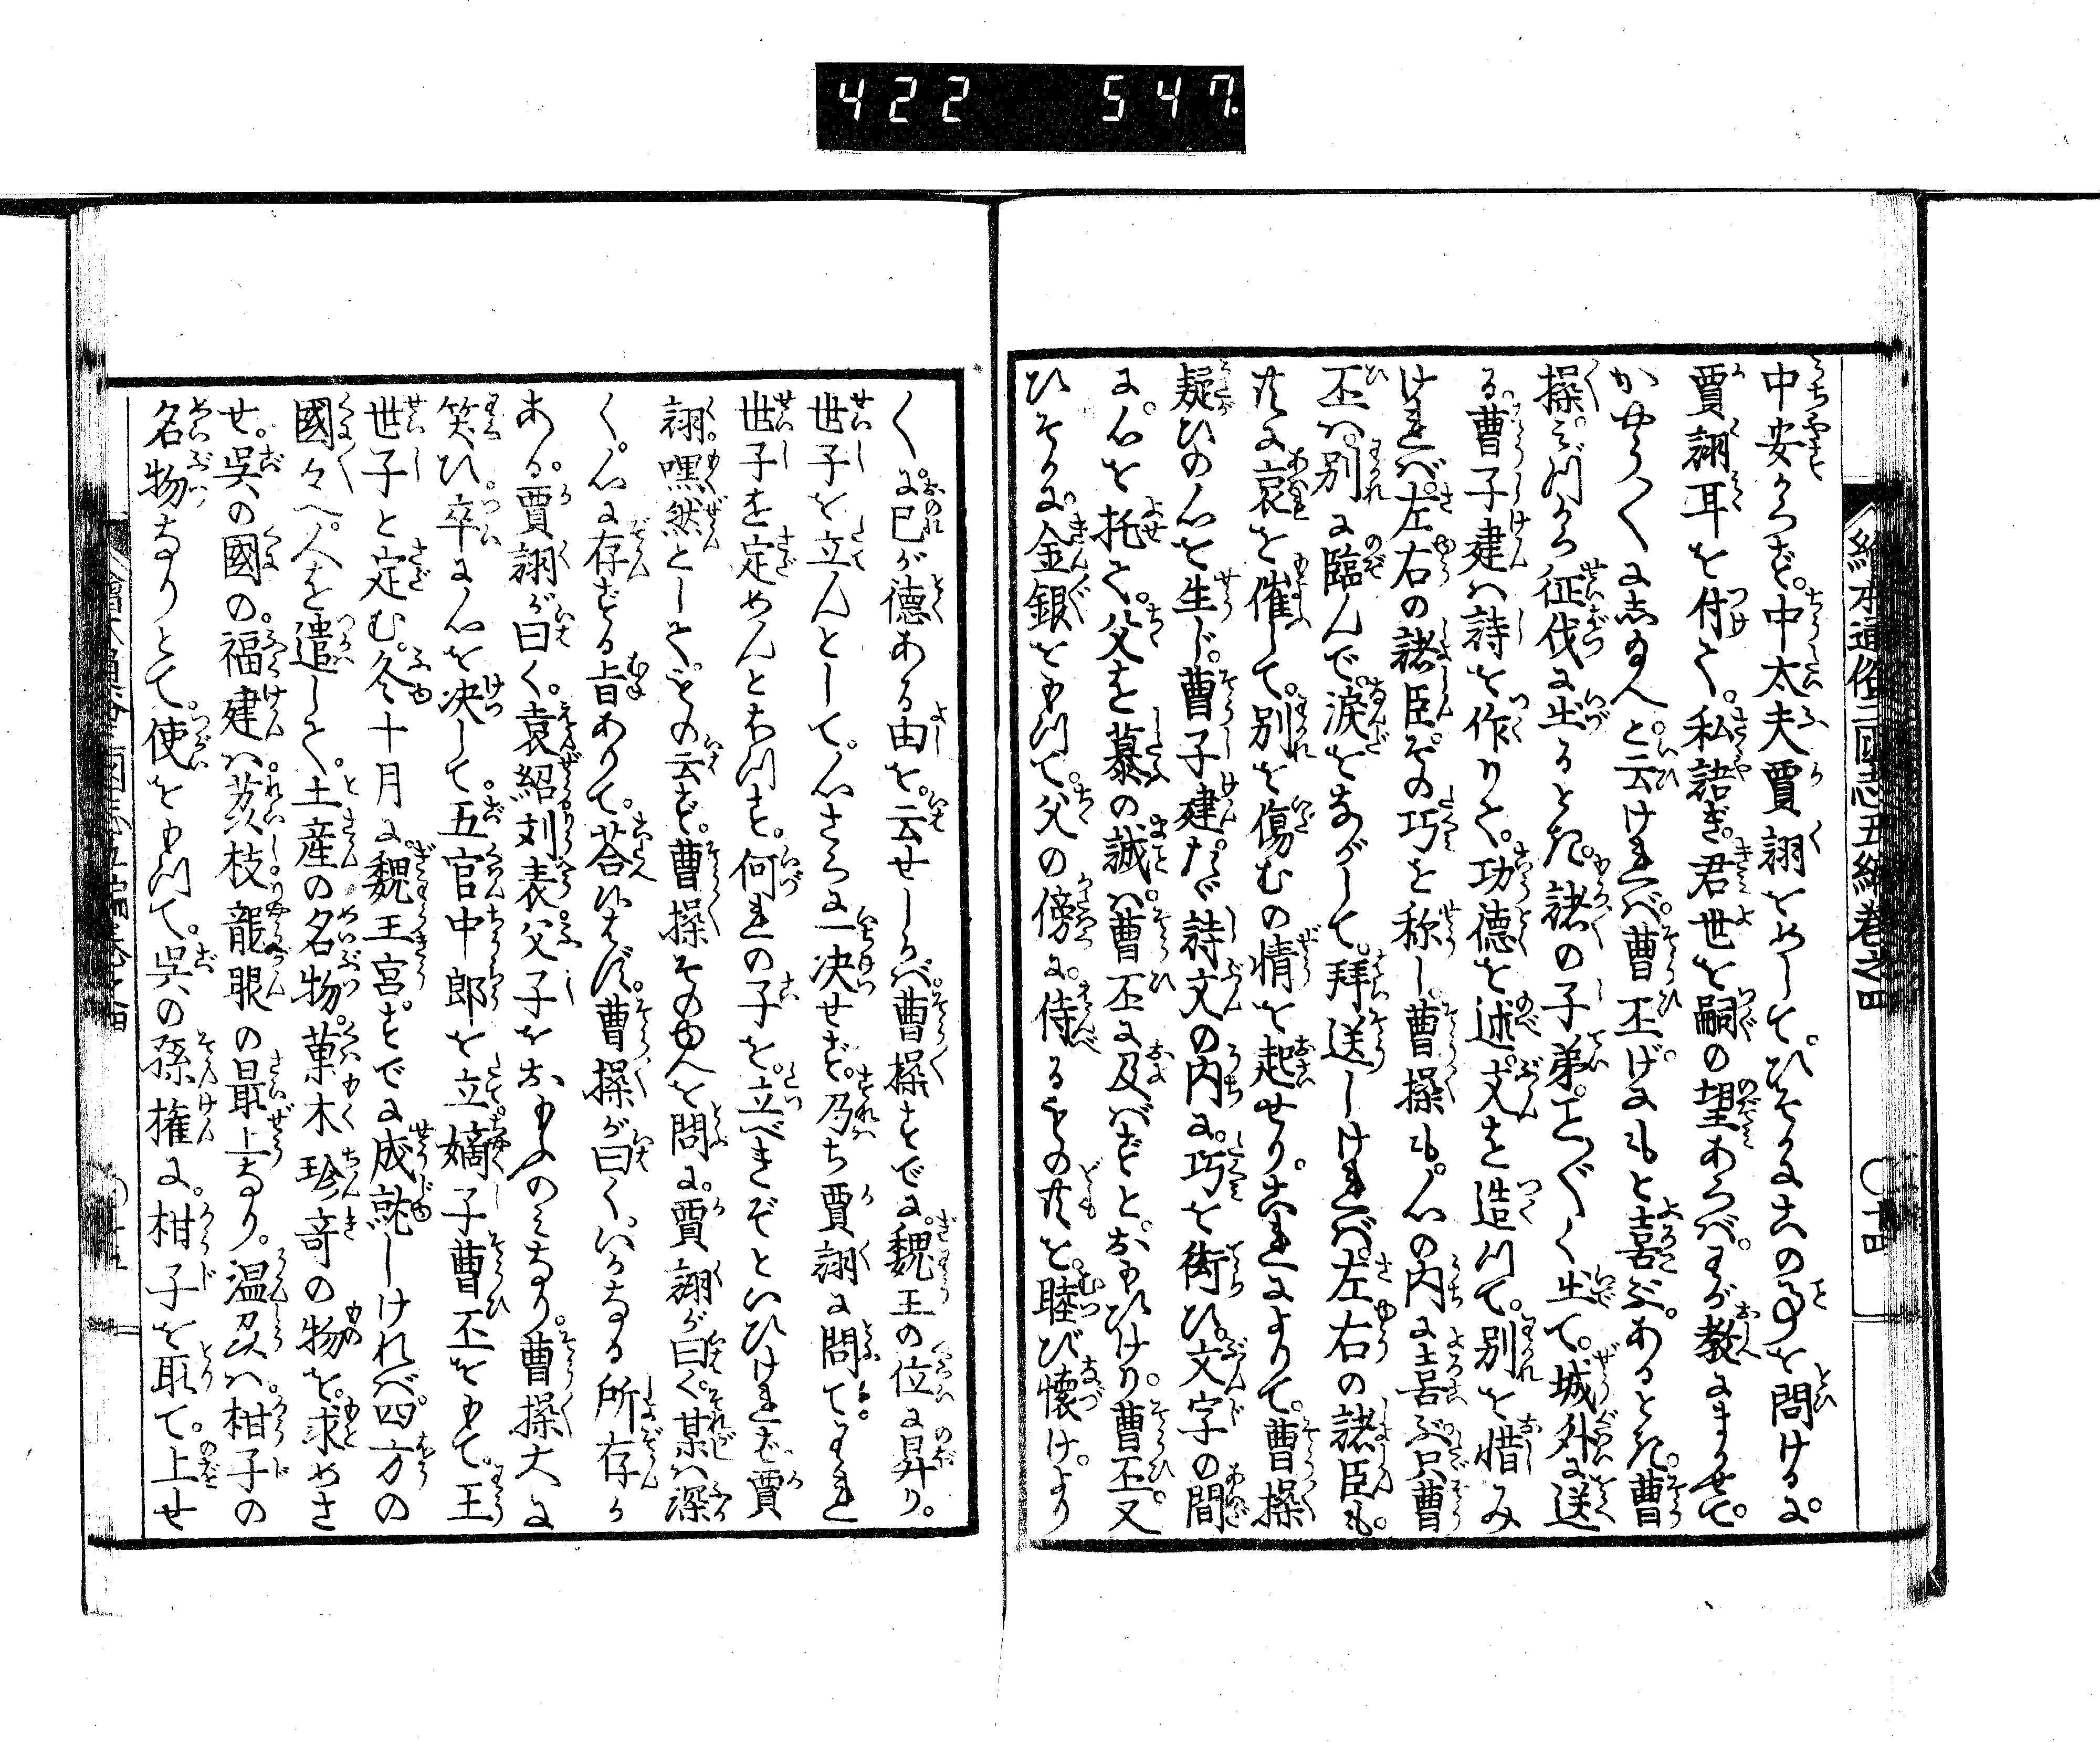 422 547.
繪本通俗三國志五編卷之四 〇十四
中安からず。中太夫賈詡をめして。ひそかに此の事を問けるに。
賈詡耳を付て。私語ぎ。君世を嗣の望あらば。わが教にまかせて。
かやう〳〵にし給へと云ければ。曹丕げにもと喜ぶ。あるとき。曹
操。みづから征伐に出るとき。諸の子弟。こと〴〵く出て。城外に送
る。曹子建は詩を作りて。功徳を述。文を造つて。別を惜み
ければ。左右の諸臣。その巧を称し。曹操も。心の内に喜ぶ。只曹
丕は。別に臨んで。涙をながして。拜送しければ。左右の諸臣も。
共に哀を催して。別を傷むの情を起せり。これによりて。曹操
疑ひの心を生じ。曹子建たゞ詩文の内に。巧を衒ひ。文字の間
に。心を托て。父を慕の誠は。曹丕に及ばずと。おもひけり。曹丕又
ひそかに。金銀をもつて。父の傍に。侍るもの共を。睦び懐け。より
〳〵に己が徳ある由を。云せしかば。曹操すでに。魏王の位に昇り。
世子を立んとして。心さらに一决せず。乃ち賈詡に問て。われ
世子を定めんとおもふ。何れの子を。立べきぞといひければ。賈
詡。嘿然として。もの云ず。曹操そのゆへを問に。賈詡が曰く。某は深
く。心に存ずる旨ありて。荅候はず。曹操が曰く。いかなる所存か
ある。賈詡が曰く。袁紹刘表父子をおもふのみなり。曹操大に
笑ひ。卒に心を决して。五官中郎を立。嫡子曹丕をもて。王
世子と定む。冬十月に。魏王宮。すでに成就しければ。四方の
國々へ。人を遣して。土産の名物。菓木珍竒の物を。求めさ
せ。呉の國の。福建は。茘枝龍眼の最上なり。温州は柑子の
名物なりとて。使をもつて。呉の孫權に。柑子を取て。上せ